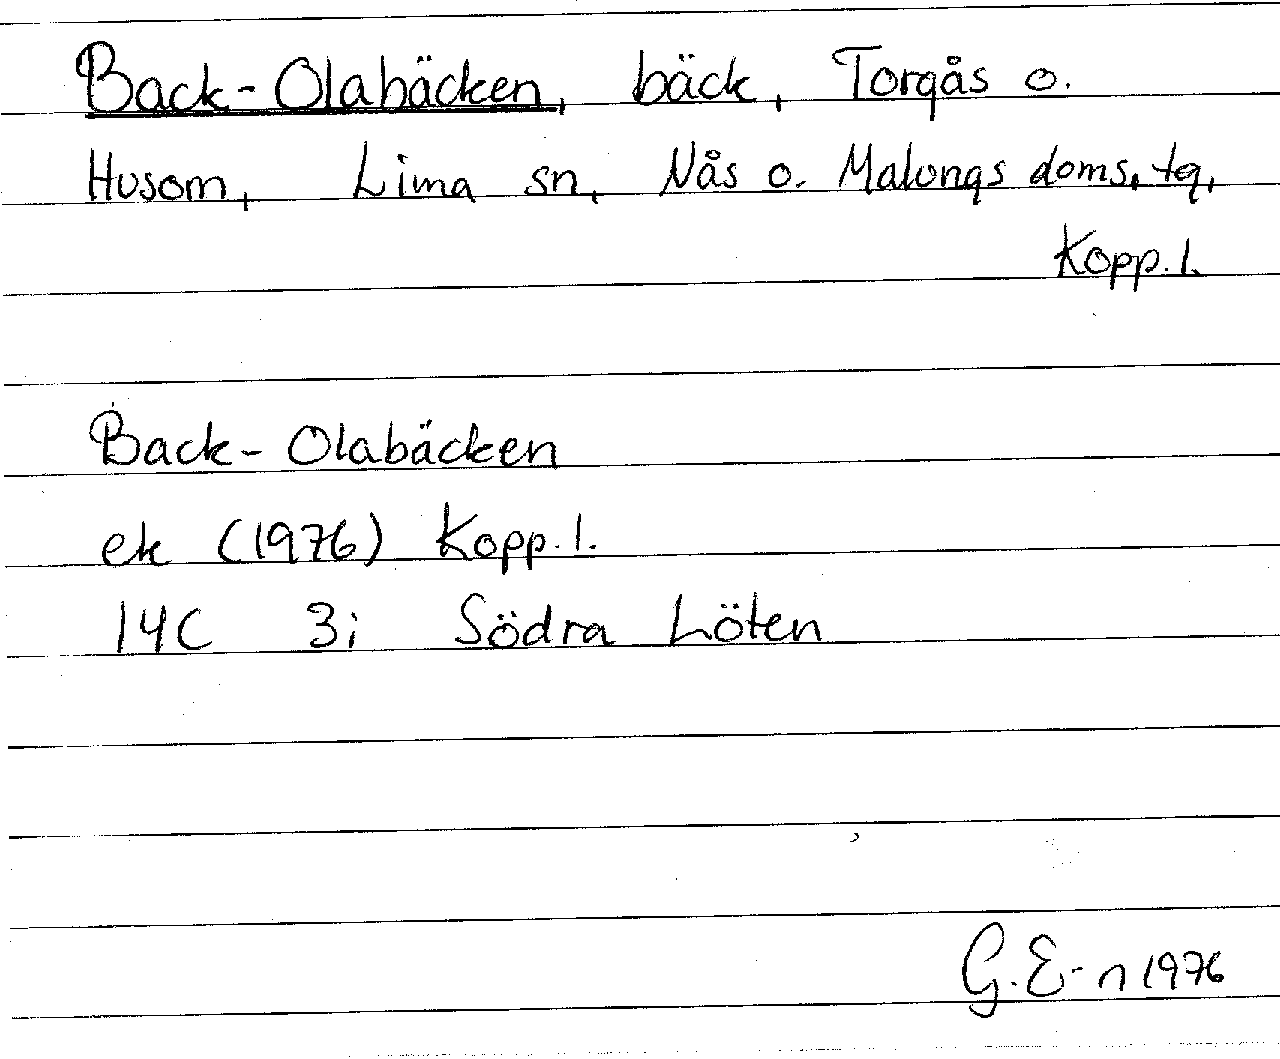 Back-Olabäcken, bäck, Torgås o.
Husom, Lima sn, Nås o. Malungs doms. tg,
Kopp. l.
Back-Olabäcken
ek (1976) Kopp. l.
14C 3i Södra Löten
G.E-n 1976